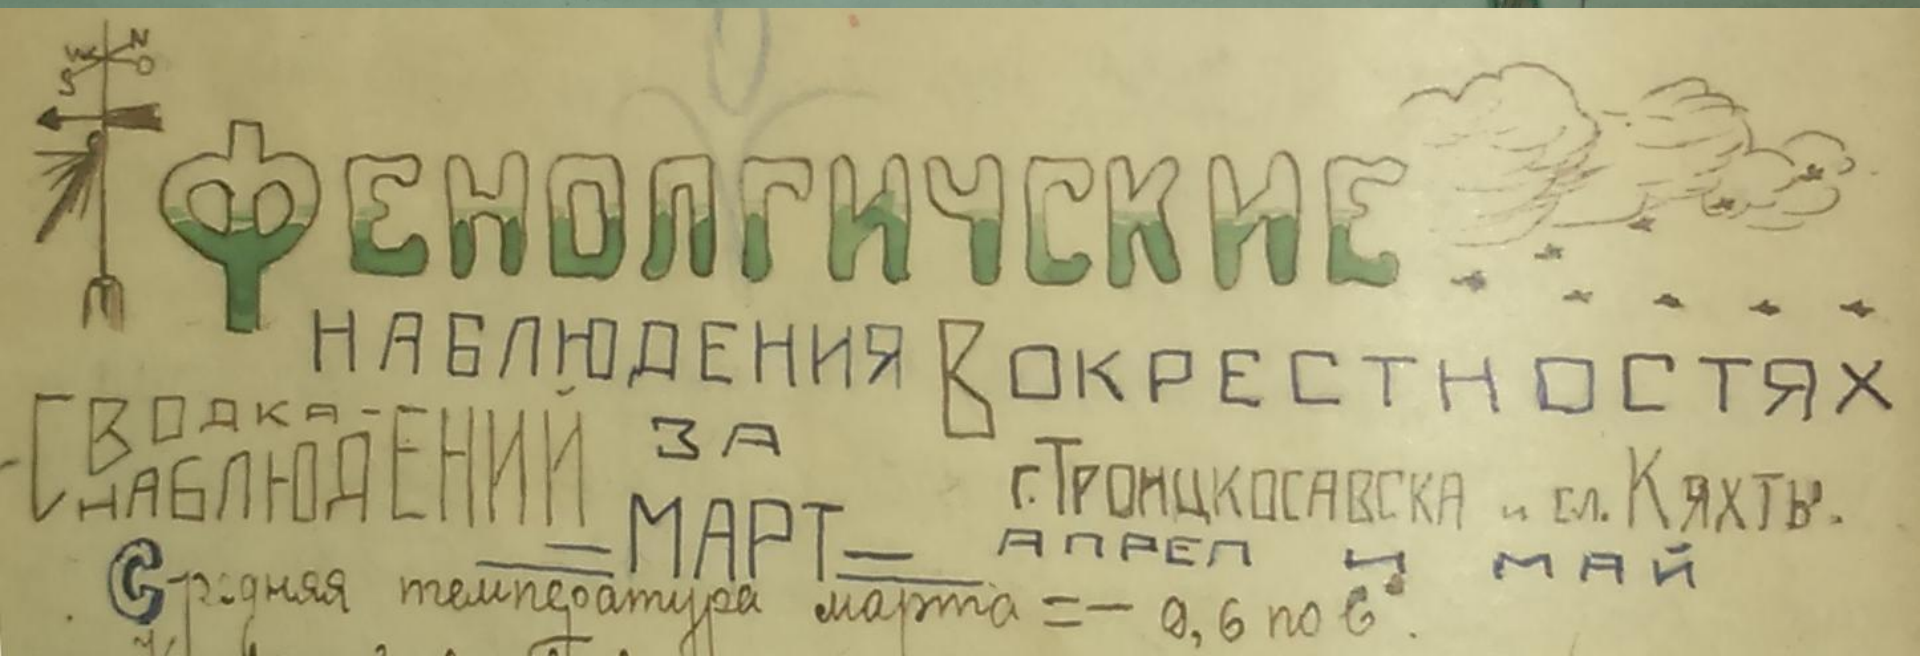 W N
S O
ФЕНОЛГИЧСКИЕ
НАБЛЮДЕНИЯ В ОКРЕСТНОСТЯХ
СВОДКА-НАБЛЮДЕНИЙ
ЗА
г. ТРОИЦКОСАВСКА и сл. КЯХТЫ.
МАРТ АПРЕЛ И МАЙ
Средняя температура марта = - 9,6 по С°.